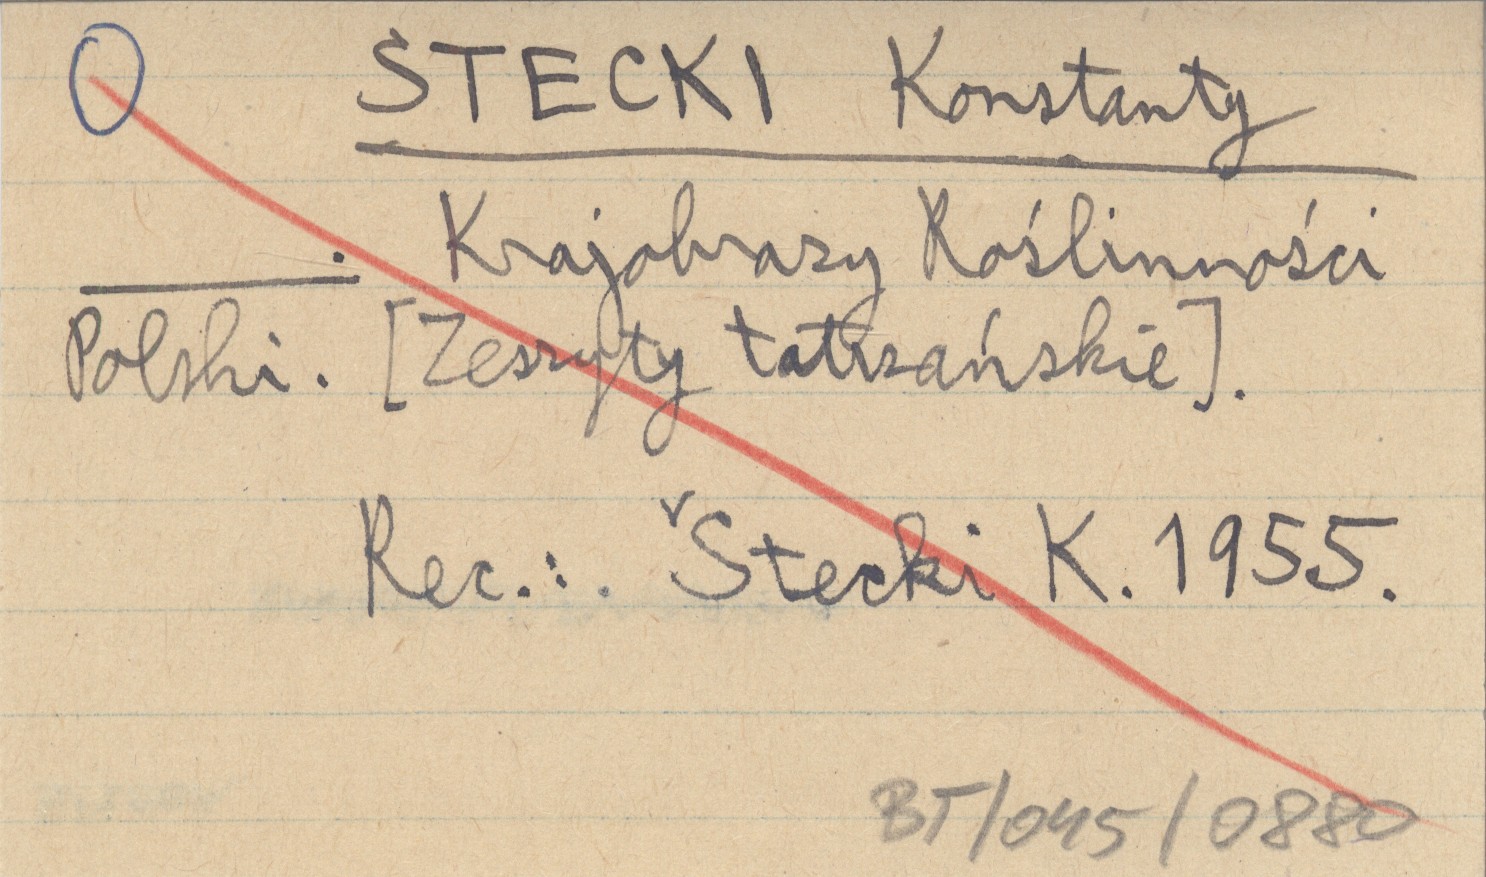 STECKI Konstanty
______. Krajobrazy Roślinności
Polski. [Zeszyty tatrzańskie].
Rec.:. Stecki K. 1955.
BT/045/0880